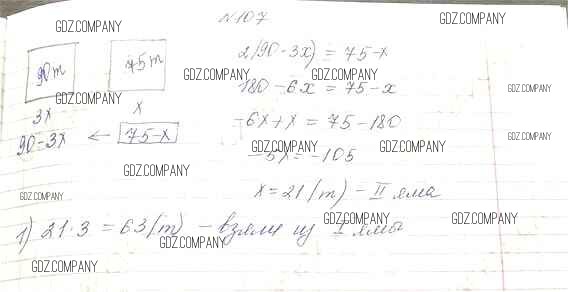 №107
GDZ.COMPANY
GDZ.COMPANY
90 т
75 т
2(90-3x) = 75-x
GDZ.COMPANY
GDZ.COMPANY
180-6x = 75-x
GDZ.COMPANY
GDZ.COMPANY
3x
x
-6x+x = 75-180
90-3x ← 75-x
GDZ.COMPANY
GDZ.COMPANY
GDZ.COMPANY
-5x = -105
GDZ.COMPANY
x = 21 (т) - II яма
GDZ.COMPANY
GDZ.COMPANY
GDZ.COMPANY
1) 21·3 = 63 (т) - взяли из I ямы
GDZ.COMPANY
GDZ.COMPANY